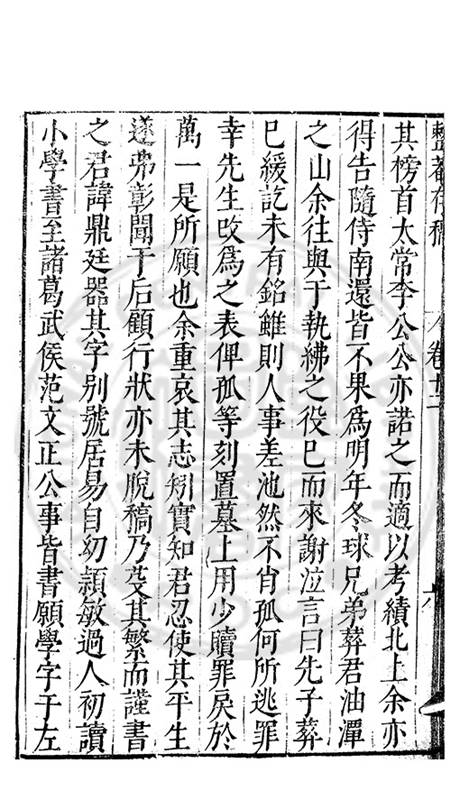 整菴存稿 卷十二 六
其榜首太常李公公亦諾之而適以考績北上余亦
得告隨侍南還皆不果爲明年冬球兄弟葬君油潭
之山余往與于執紼之役已而來謝泣言曰先子葬
已緩訖未有銘雖則人事差池然不肖孤何所逃罪
幸先生改爲之表俾孤等刻置墓上用少贖罪戾於
萬一是所願也余重哀其志矧實知君忍使其平生
遂弗彰聞于后顧行狀亦未脫稿乃芟其繁而謹書
之君諱鼎廷器其字别號居易自幼穎敏過人初讀
小學書至諸葛武侯范文正公事皆書願學字于左